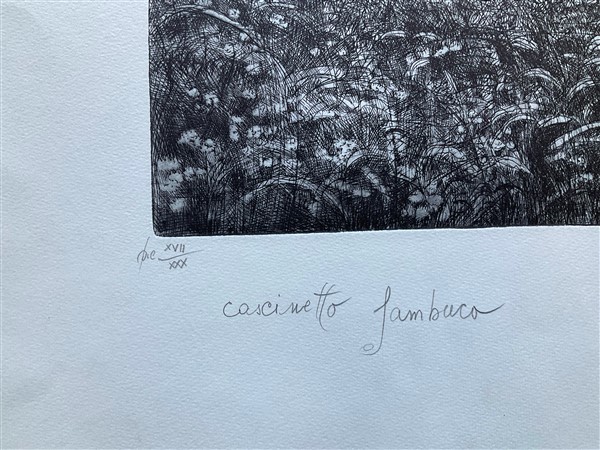 XVII
XXX
cascinetto Sambuco